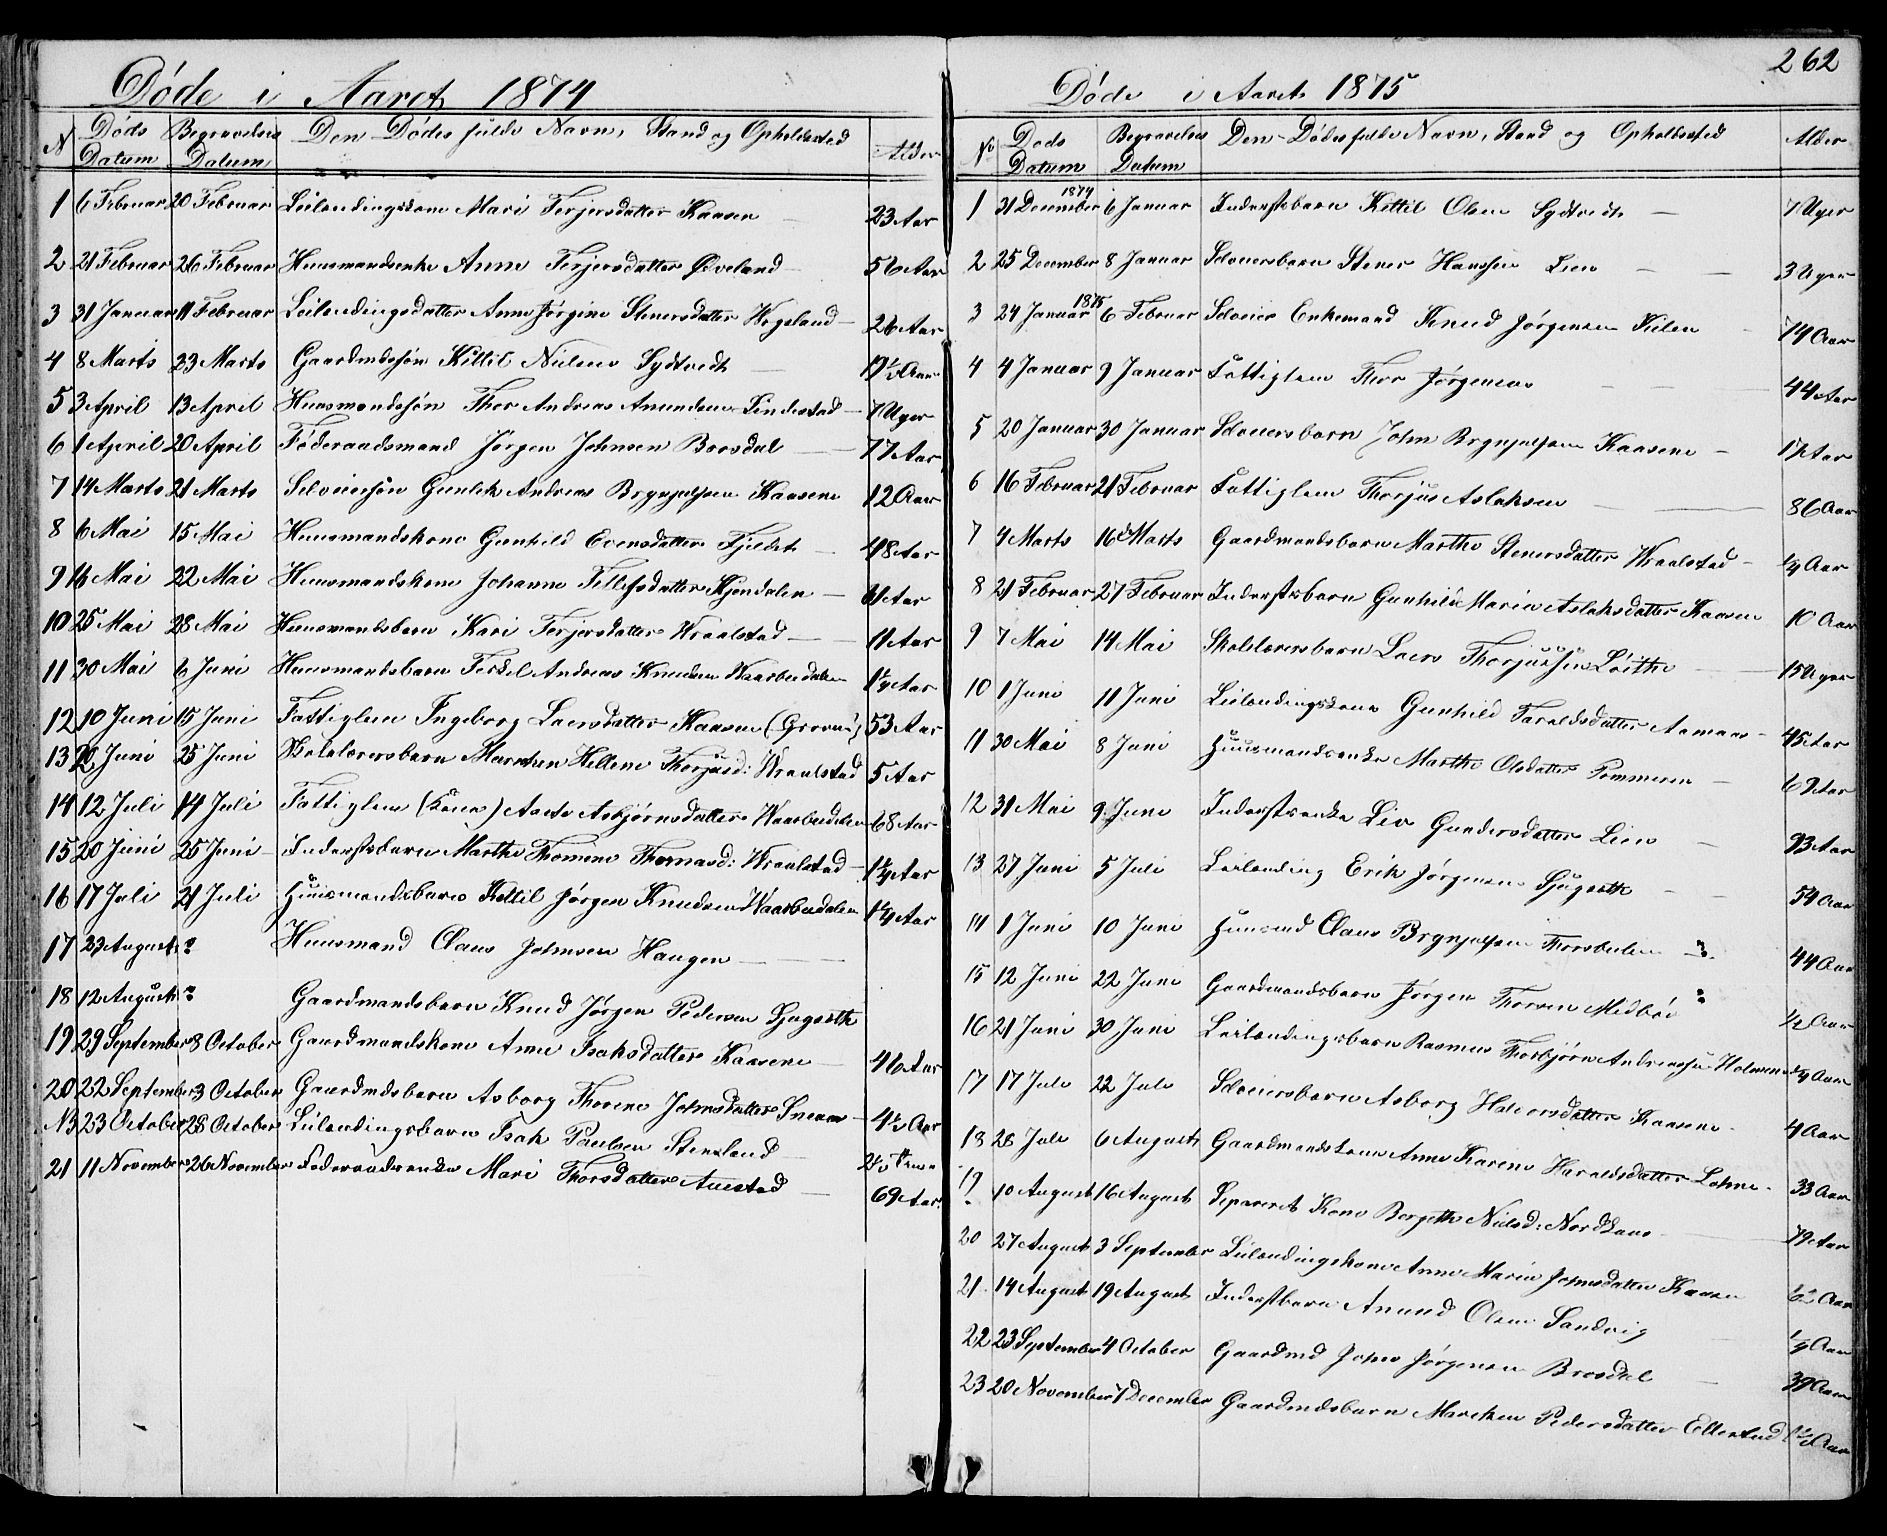 262
Døde i Aaret 1874
N Døds Datum Begravelses Datum Den Dødes fulde Navn, Stand og Opholdssted Alder
1 6 Februar 20 Februar Leilendingskone Mari Terjersdatter Kaasen 23 Aar
2 21 Februar 26 Februar Huusmandsenke Anne Terjersdatter Ødveland 56 Aar
3 31 Januar 11 Februar Leilendingsdatter Anne Jørgine Stenersdatter Wegeland 26 Aar
4 8 Marts 23 Marts Gaardmdssøn Kittil Nielsen Sydtvedt Aar
5 3 April 13 April Huusmandssøn Thor Andreas Amundsen Lindestad 7 Uger
6 1 April 20 April Føderaadsmand Jørgen Johnsen Borsdal 77 Aar
7 14 Marts 21 Marts Selveiersøn Gunlek Andreas Brynjulfsen Kaasene 12 Aar
8 6 Mai 15 Mai Huusmandskone Gunhild Evensdatter Fjeldet 48 Aar
9 16 Mai 22 Mai Huusmandskone Johanne Tellefsdatter Kjendalen 31 Aar
10 25 Mai 28 Mai Huusmandsbarn Kari Terjersdatter Wraalstad 11 Aar
11 30 Mai 6 Juni Huusmandsbarn Terkel Andreas Knudsen Waasbudalen 1¼ Aar
12 10 Juni 15 Juni Fattiglem Ingeborg Laersdatter Kaasen 53 Aar
13 22 Juni 25 Juni Skolelærersbarn Marthea Hellene Thorjusd: Wraalstad 5 Aar
14 12 Juli 14 Juli Fattiglem (Kone) Aaste Asbjørnsdatter Waasbudalen 68 Aar
15 20 Juni 25 Juni Inderstsbarn Marthe Thomine Thomasd: Wraalstad 1¼ Aar
16 17 Juli 21 Juli Huusmandsbarn Kittil Jørgen Knudsen Waasbudalen 1¼ Aar
17 23 August ? Huusmand Claus Johnsen Haugen
18 12 August ? Gaardmandsbarn Knud Jørgen Pedersen Sjugerth
19 29 September 8 October Gaardmandskone Anne Isaksdatter Kaasene 46 Aar
20 22 September 3 October Gaardmdsbarn Asborg Thorine Johnsdatter 4½ Aar
N3 23 October 28 October Leilendingsbarn Isak Paulsen Stensland
21 11 November 26 November Føderaadsenke Mari Thorsdatter Auestad 69 Aar
Døde i Aaret 1875
No Døds Datum Begravelses Datum Den Dødes fulde Navn, Stand og Opholdssted Alder
1 31 December 1874 6 Januar Inderstsbarn Kittil Olsen Sydtvedt 7 Uger
2 25 December 8 Januar Selveiersbarn Stener Hansen Lien 3 Uger
3 24 Januar 1875 6 Februar Selveier Enkemand Knud Jørgensen Kilen 74 Aar
4 4 Januar 9 Januar Fattiglem Thor Jørgensen 44 Aar
5 20 Januar 30 Januar Selveiersbarn John Brynjulfsen Kaasene 17 Aar
6 16 Februar 21 Februar Fattiglem Thorjus Aslaksen 86 Aar
7 4 Marts 16 Marts Gaardmandsbarn Marthe Stenersdatter Wraalstad ¼ Aar
8 21 Februar 27 Februar Inderstsbarn Gunhild Marie Aslaksdatter Kaasen 10 Aar
9 7 Mai 14 Mai Skolelærersbarn Laers Thorjussen Løithe 15 Uger
10 1 Juni 11 Juni Leilendingskone Gunhild Taraldsdatter Aamaas 45 Aar
11 30 Mai 8 Juni Huusmandsenke Marthe Olsdatter Pommeren 69 Aar
12 31 Mai 9 Juni Inderstsenke Liv Gundersdatter Lien 93 Aar
13 27 Juni 5 Juli Leilending Erik Jørgensen Sjugerth 54 Aar
14 1 Juni 10 Juni Huusmd Claus Brynjulfsen Thorsbulen 44 Aar
15 12 Juni 22 Juni Gaardmandsbarn Jørgen Thorsen Midbøe ½ Aar
16 21 Juni 30 Juni Leilendingsbarn Rasmus Thorbjørn Andreassen Holmen ¼ Aar
17 17 Juli 22 Juli Selveiersbarn Asborg Halvorsdatter Kaasene 4 Aar
18 28 Juli 6 August Gaardmandskone Anne Karine Haraldsdatter Lohne 33 Aar
19 10 August 16 August Separeret Kone Bergethe Nielsd: Nordkaas 79 Aar
20 27 August 3 September Leilendingskone Anne Marie Johnsdatter Kaasen 62 Aar
21 14 August 19 August Inderstbarn Anund Olsen Sandvig Aar
22 23 September 4 October Gaardmd John Jørgensen Brosdal 39 Aar
23 20 November 7 December Gaardmdsbarn Marthea Pedersdatter Ellestad 1½ Aar